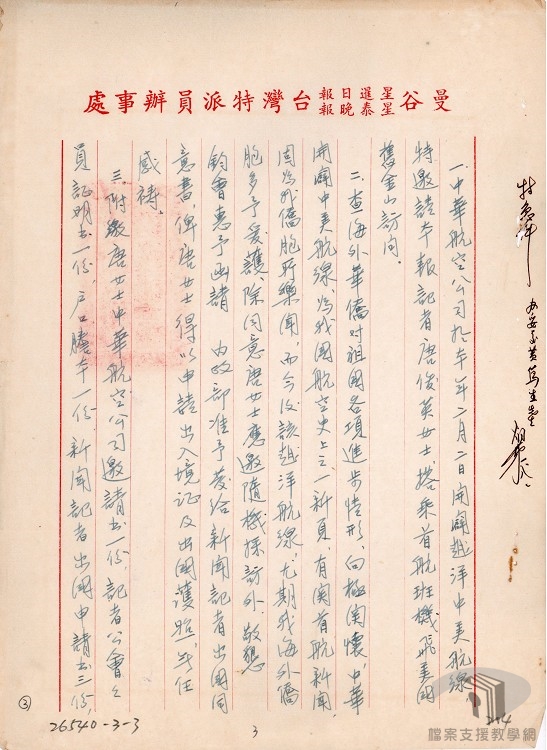 曼谷星暹日報星泰晚報台灣特派員辦事處
一、中華航空公司於本年二月二日開闢越洋中美航線
特邀請本報記者唐俊英女士搭乘首航班機飛美國
舊金山訪問。
二、查海外華僑對祖國各項進步情形，向極關懷，中華
開闢中美航線，為我國航空史上之一新頁，有關首航新聞，
固為我僑胞所樂聞，而今後該越洋航線，尤期我海外僑
胞多予愛護，除同意唐女士應邀隨機採訪外，敬懇
鈞會惠予函請　內政部准予發給新聞記者出國同
意書，俾唐女士得以申請出入境証及出國護照，無任
感禱。
三、附繳唐女士中華航空公司邀請書一份，記者公會會
員証明書一份，戶口謄本一份，新聞記者出國申請書三份，
特急件
③
26540-3-3
3
214
檔案支援教學網